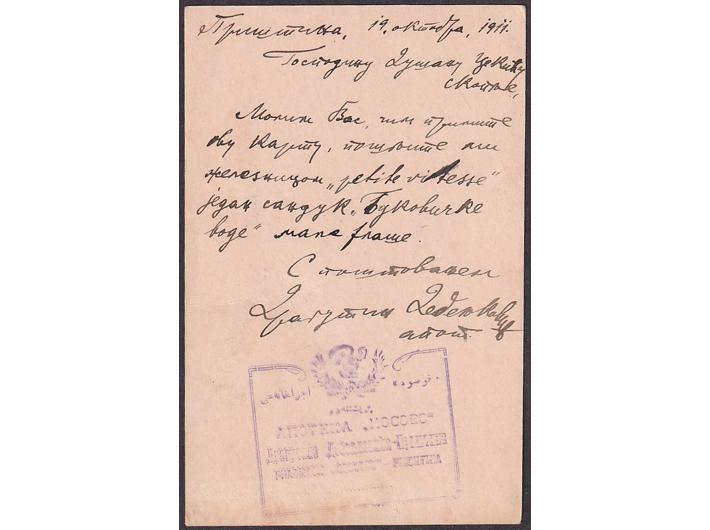 Приштина, 19. октобра, 1911.
Господину Душану Цекићу
Скопље,
Молим Вас, чим примите
ову карту, пошљите ми
железницом „petite vitesse“
један сандук „Буковичке
воде“ мале флаше.
С поштовањем
Драгутин
апот.
АПОТЕКА „КОСОВО“